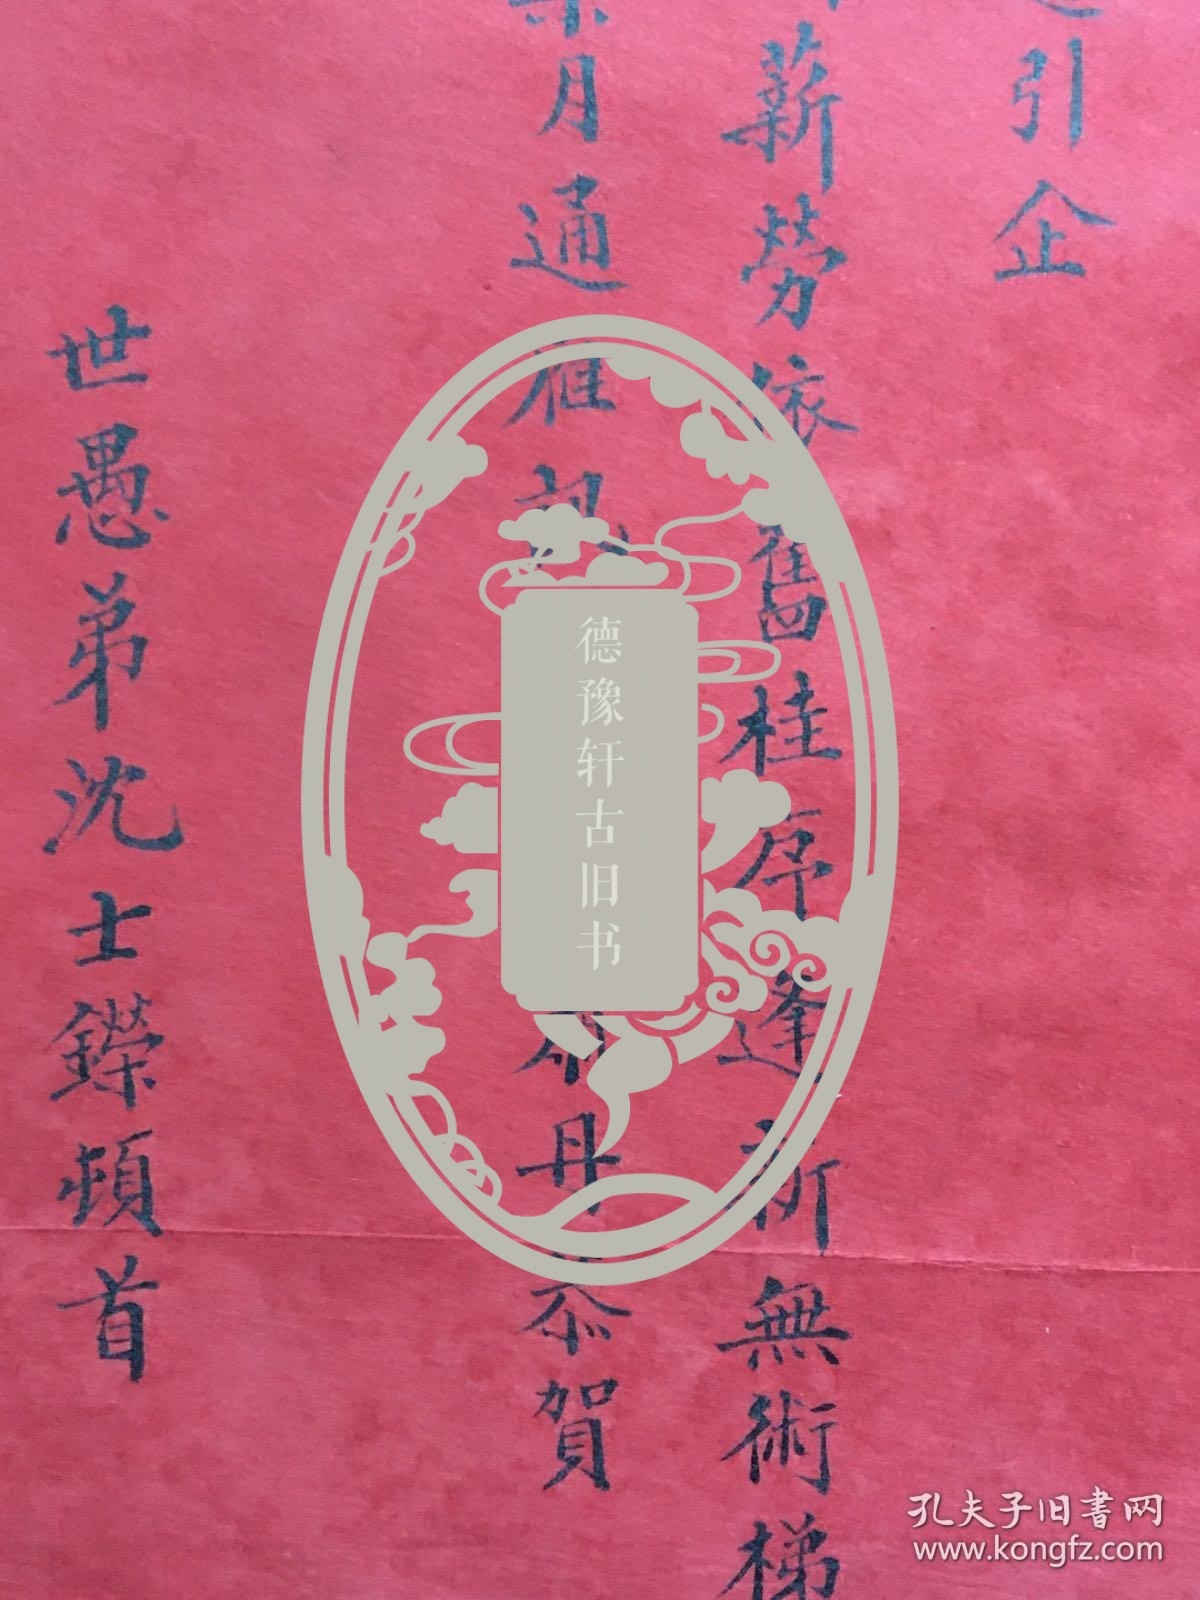 引企
薪勞依舊桂序逢新無術梯
月通雁訊
丹忝賀
世愚弟沈士鑅頓首
德豫轩古旧书
孔夫子旧書网
www.kongfz.com